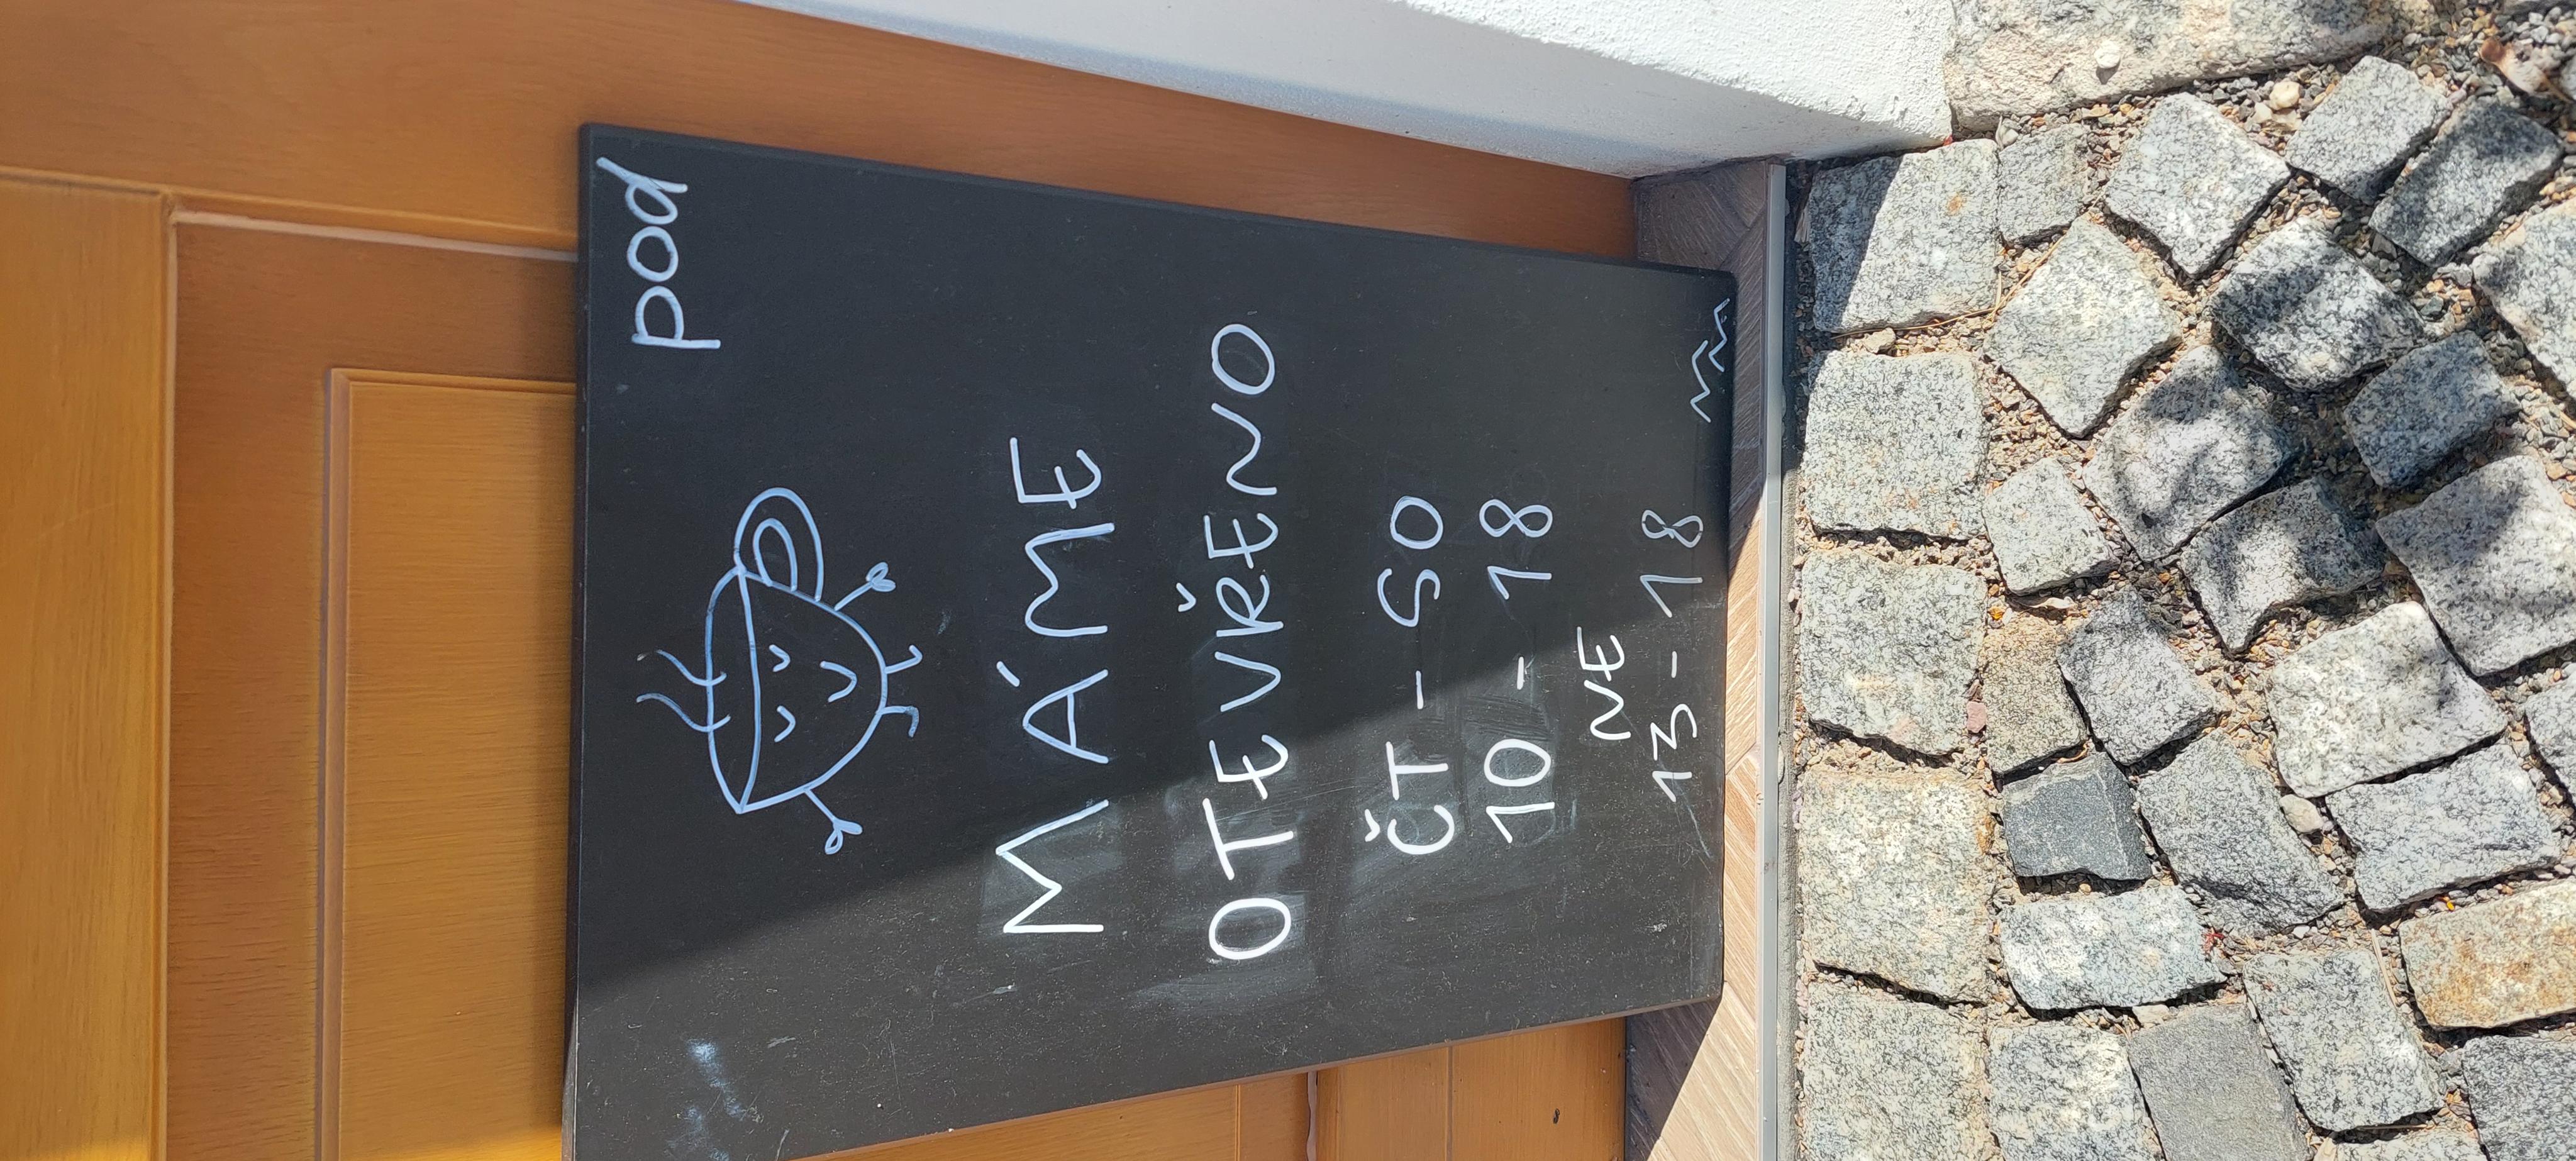 pod
MÁME
OTEVŘENO
ČT - SO
10 - 18
NE
13 - 18